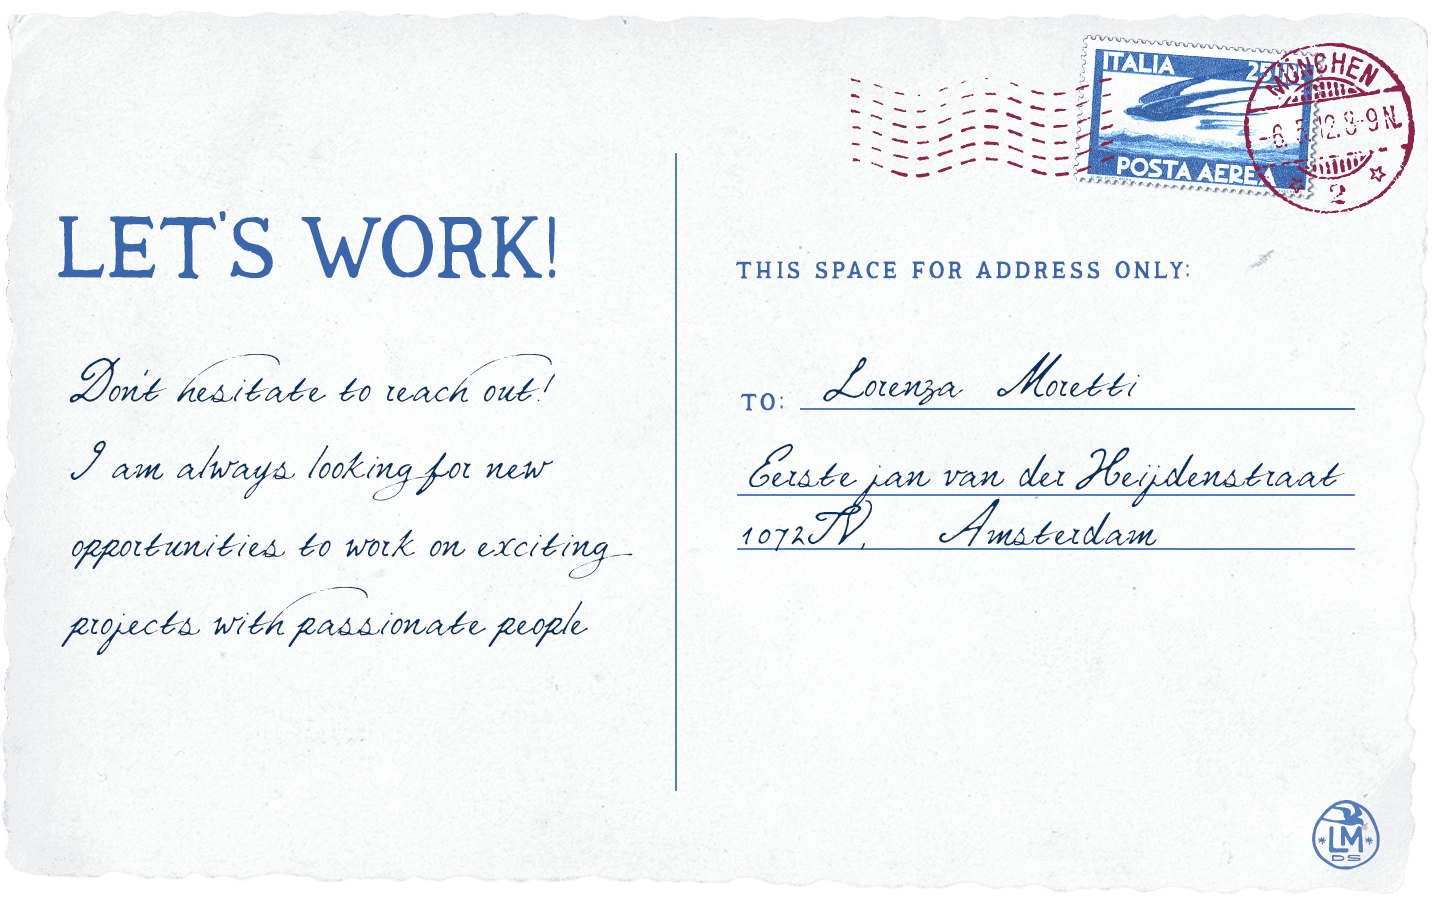 ITALIA
POSTA AEREA
MÜNCHEN
8-9 N.
2
LET'S WORK!
Don't hesitate to reach out!
I am always looking for new
opportunities to work on exciting
projects with passionate people
THIS SPACE FOR ADDRESS ONLY:
TO: Lorenza Moretti
Eerste jan van der Heijdenstraat
1072TV, Amsterdam
LM
DS